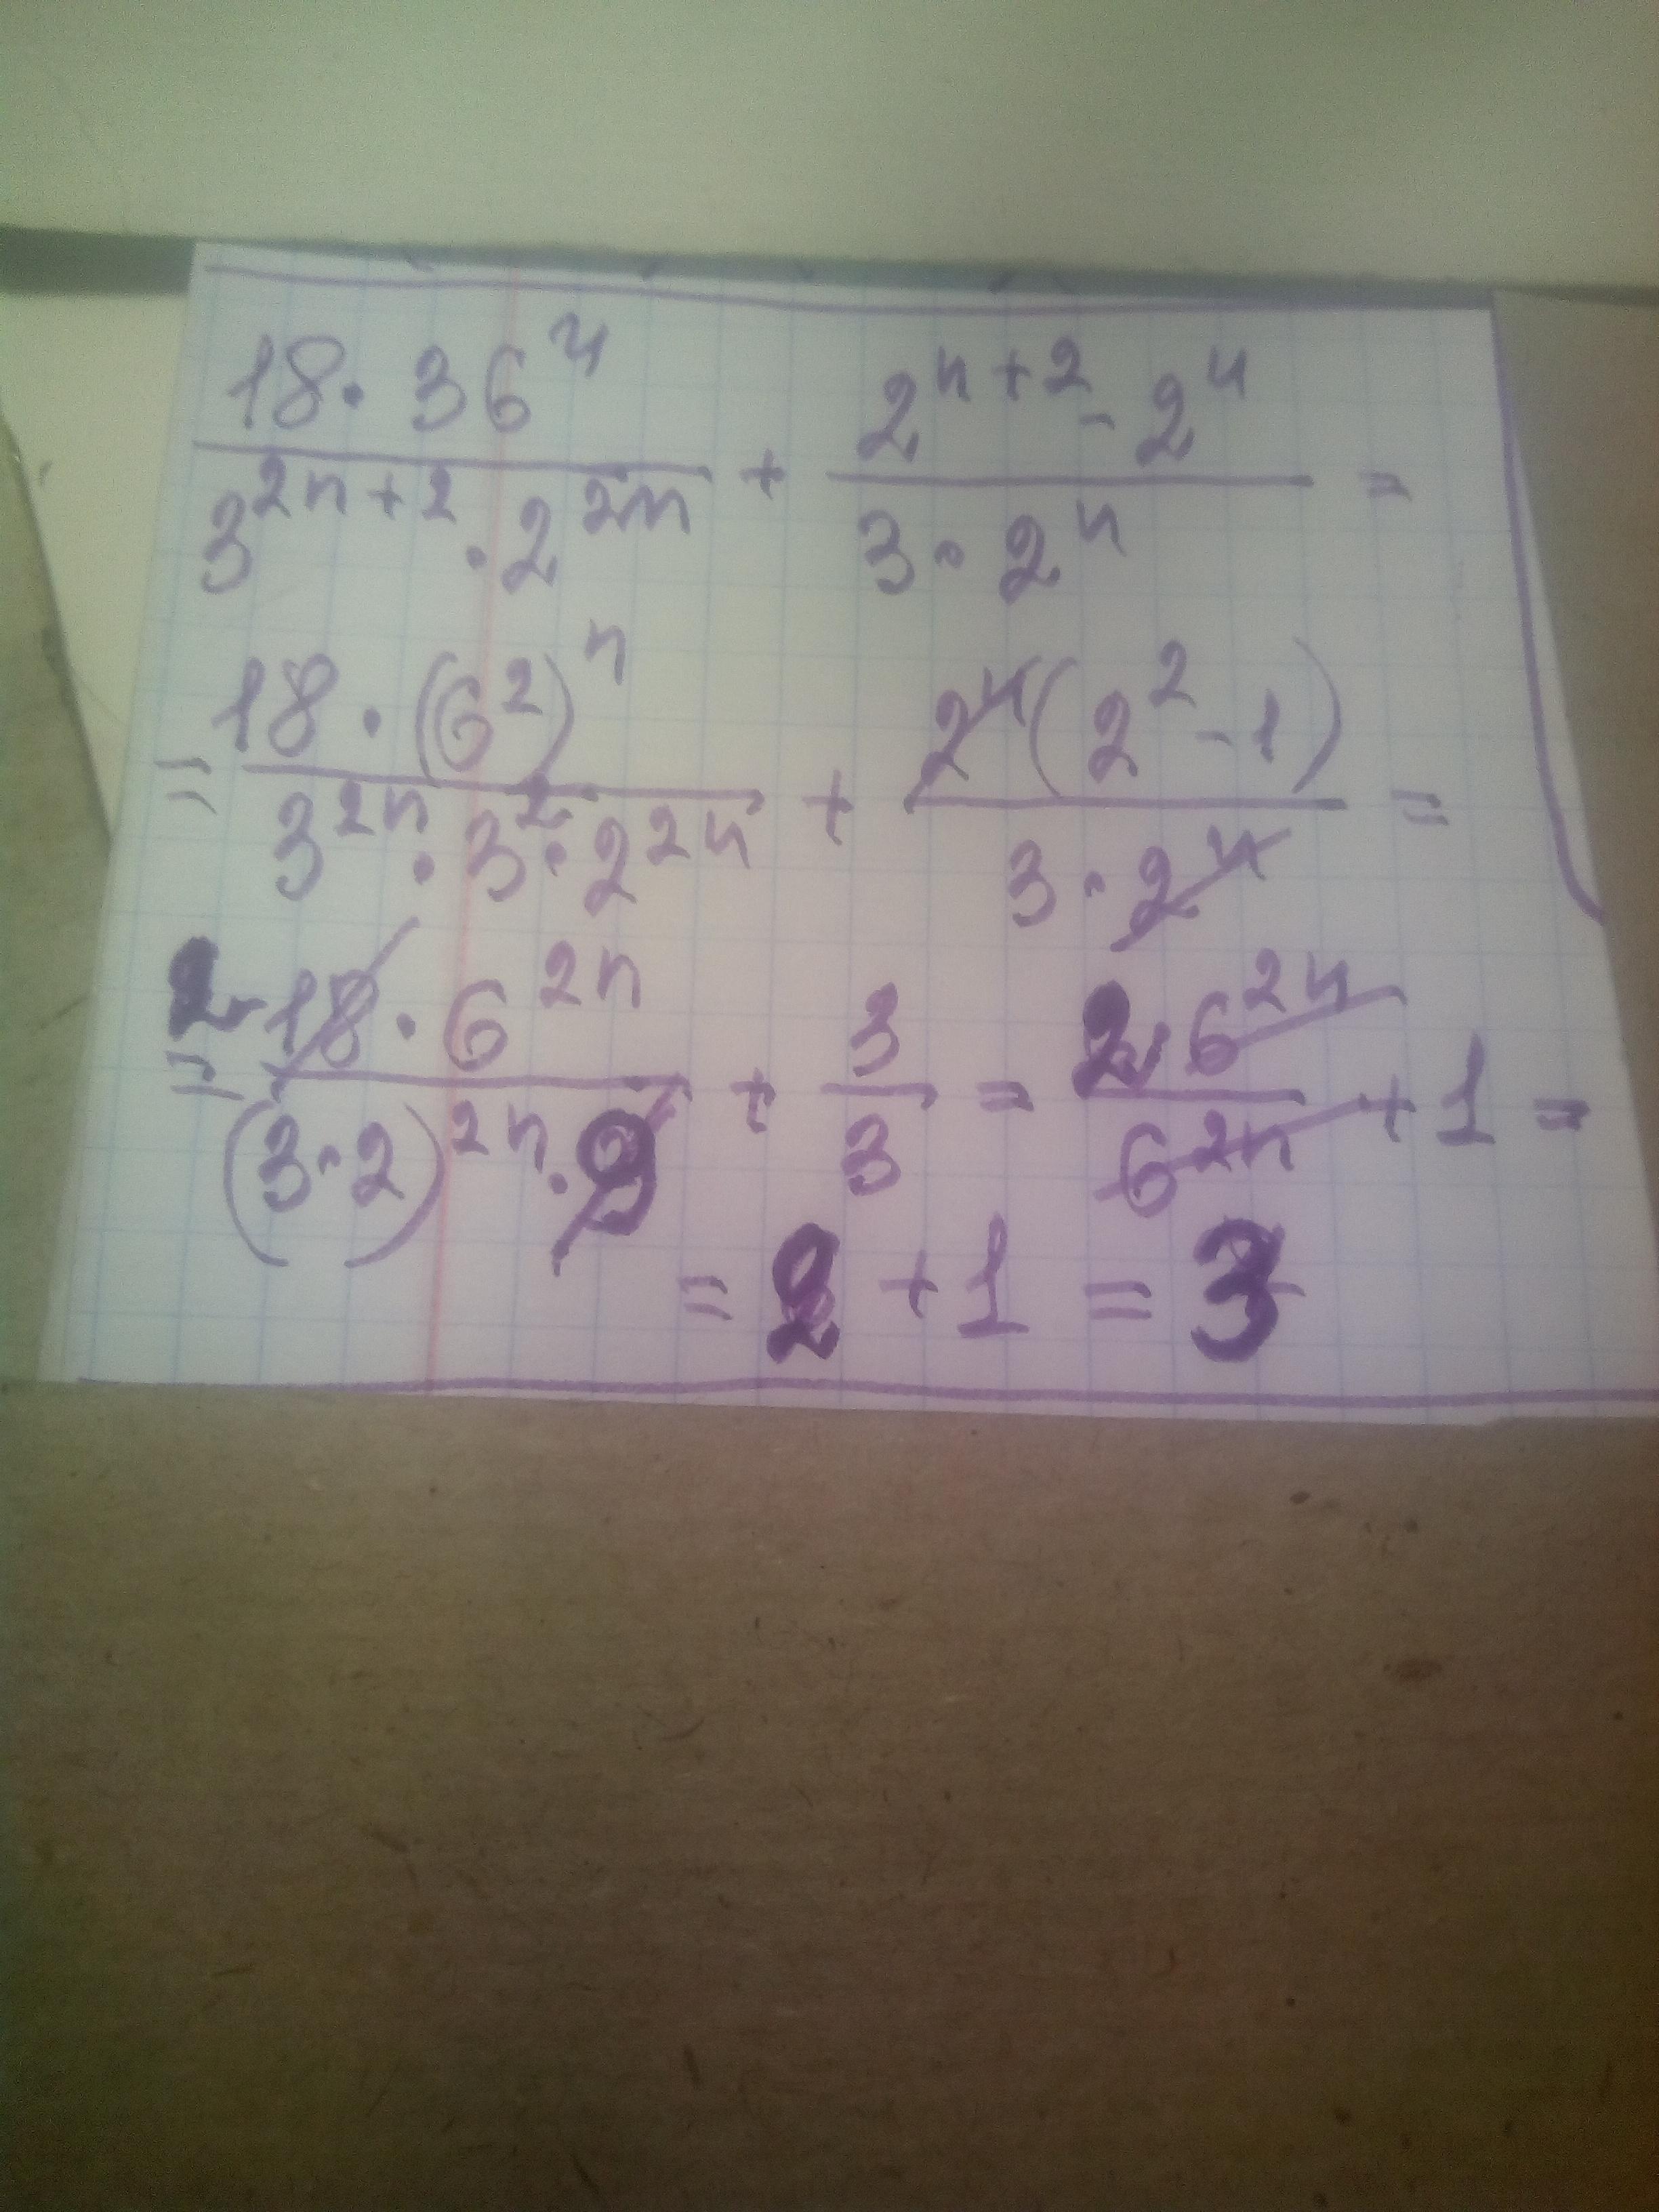 18 · 36^n / 3^(2n+2) · 2^(2n) + 2^(n+2) - 2^n / 3 · 2^n =
= 18 · (6^2)^n / 3^(2n) · 3^2 · 2^(2n) + 2^n (2^2 - 1) / 3 · 2^n =
= 2 18 · 6^(2n) / (3 · 2)^(2n) · 9 + 3 / 3 = 2 · 6^(2n) / 6^(2n) + 1 =
= 2 + 1 = 3